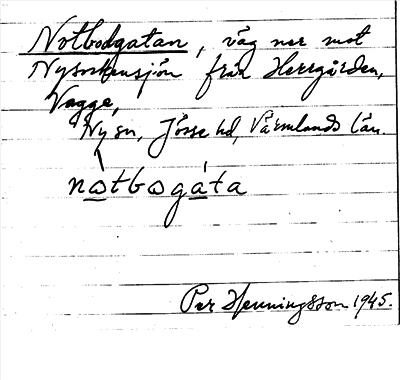 Notbodgatan, väg ner mot
Nysockensjön från Herrgården,
Vagge,
Ny sn, Jösse hd, Värmlands län.
nòtbogáta
Per Henningsson 1945.